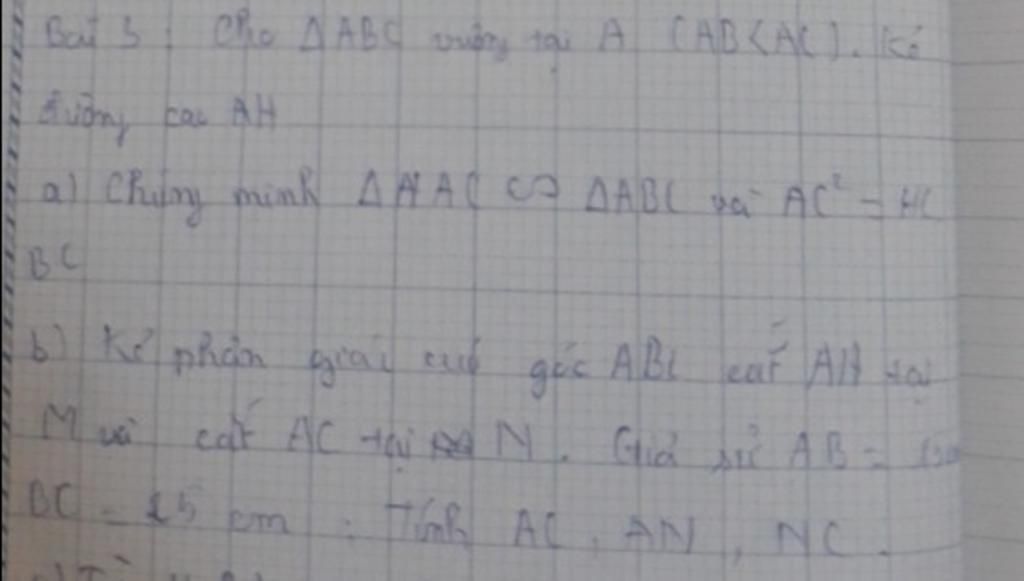 Bài 3: Cho ΔABC vuông tại A (AB<AC). Kẻ
đường cao AH
a) Chứng minh ΔHAC ∽ ΔABC và AC² = HC
BC
b) Kẻ phân giác của góc ABC cắt AH tại
M và cắt AC tại N. Giả sử AB =
BC = 15 cm. Tính AC, AN, NC.